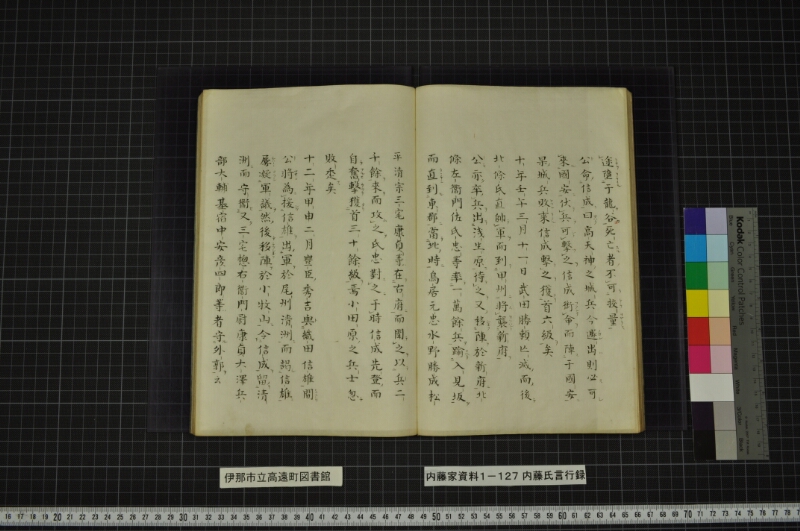 逢墮于龍谷死亡者不可我量
公命信成曰高天神之城兵今遁出則必可
來國安伏兵可擊之信成銜命而陣于國安
果城兵敗來信成擊之獲首六級矣
十年壬午三月十一日武田勝賴亡滅而後
北條氏直師軍而到甲州將襲新府
公亦率兵出淺生原待之又移陣於新府北
條左衞門佐氏忠等率一萬餘兵踰入見坂
而直到東郡當此時鳥居元忠水野勝成松
平清宗三宅康貞等在右府而聞之以兵二
千餘來而攻之氏忠對之于時信成先登而
自奮擊獲首三十餘級焉小田原之兵士忽
敗走矣
十二年甲申二月豐臣秀吉與織田信雄鬪
公將爲援信雄出軍於尾州清洲而謁信雄
屢旋軍議然後移陣於小牧山令信成留清
洲而守衞又三宅惣右衞門尉康貞大澤兵
部大輔基宿中安彥四郎等者守外郭云
伊那市立高遠町図書館
内藤家資料1－127 内藤氏言行録
Kodak Color Control Patches